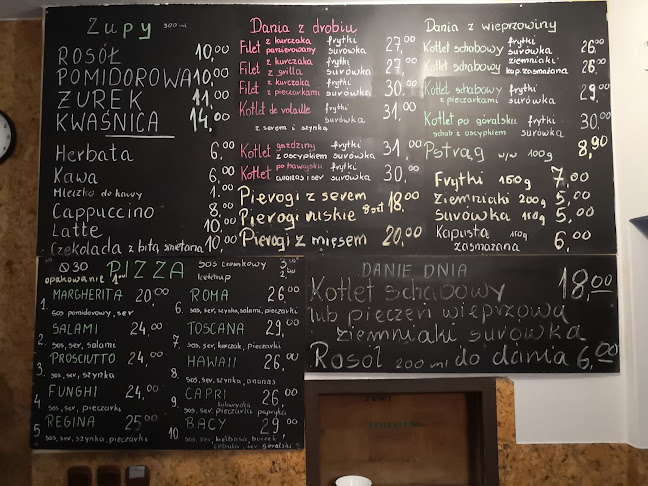 Zupy 300 ml
ROSÓŁ 10,00
POMIDOROWA 10,00
ŻUREK 11,00
KWAŚNICA 14,00
Herbata 6,00
Kawa 6,00
Mleczko do kawy 1,00
Cappuccino 8,00
Latte 10,00
Czekolada z bitą śmietaną 10,00
Dania z drobiu
Filet z kurczaka panierowany frytki surówka 27,00
Filet z kurczaka z grilla frytki surówka 27,00
Filet z kurczaka z pieczarkami frytki surówka 30,00
Kotlet de volaille frytki surówka 31,00
z serem i szynką
Kotlet gaździny z oscypkiem frytki surówka 31,00
Kotlet po hawajsku ananas i ser frytki surówka 30,00
Pierogi z serem 18,00
Pierogi ruskie 8 szt
Pierogi z mięsem 20,00
Dania z wieprzowiny
Kotlet schabowy frytki surówka 26,00
Kotlet schabowy ziemniaki kap. zasmażana 26,00
Kotlet schabowy z pieczarkami frytki surówka 29,00
Kotlet po góralsku schab z oscypkiem frytki surówka 30,00
Pstrąg w/w 100g 8,90
Frytki 150g 7,00
Ziemniaki 200g 5,00
Surówka 150g 5,00
Kapusta zasmażana 150g 6,00
Q30 PIZZA
opakowanie
sos czosnkowy 3,00
ketchup 2,00
1. MARGHERITA 20,00
sos pomidorowy, ser
2. SALAMI 24,00
sos, ser, salami
3. PROSCIUTTO 24,00
sos, ser, szynka
4. FUNGHI 24,00
sos, ser, pieczarki
5. REGINA 25,00
sos, ser, szynka, pieczarki
6. ROMA 26,00
sos, ser, szynka, salami, pieczarki
7. TOSCANA 29,00
sos, ser, kurczak, pieczarki
8. HAWAII 26,00
sos, ser, szynka, ananas
9. CAPRI 26,00
kukurydza
sos, ser, pieczarki papryka
10. BACY 29,00
sos, ser, kiełbasa, boczek,
cebula, ser góralski
DANIE DNIA
Kotlet schabowy 18,00
lub pieczeń wieprzowa
ziemniaki surówka
Rosół 200 ml do dania 6,00